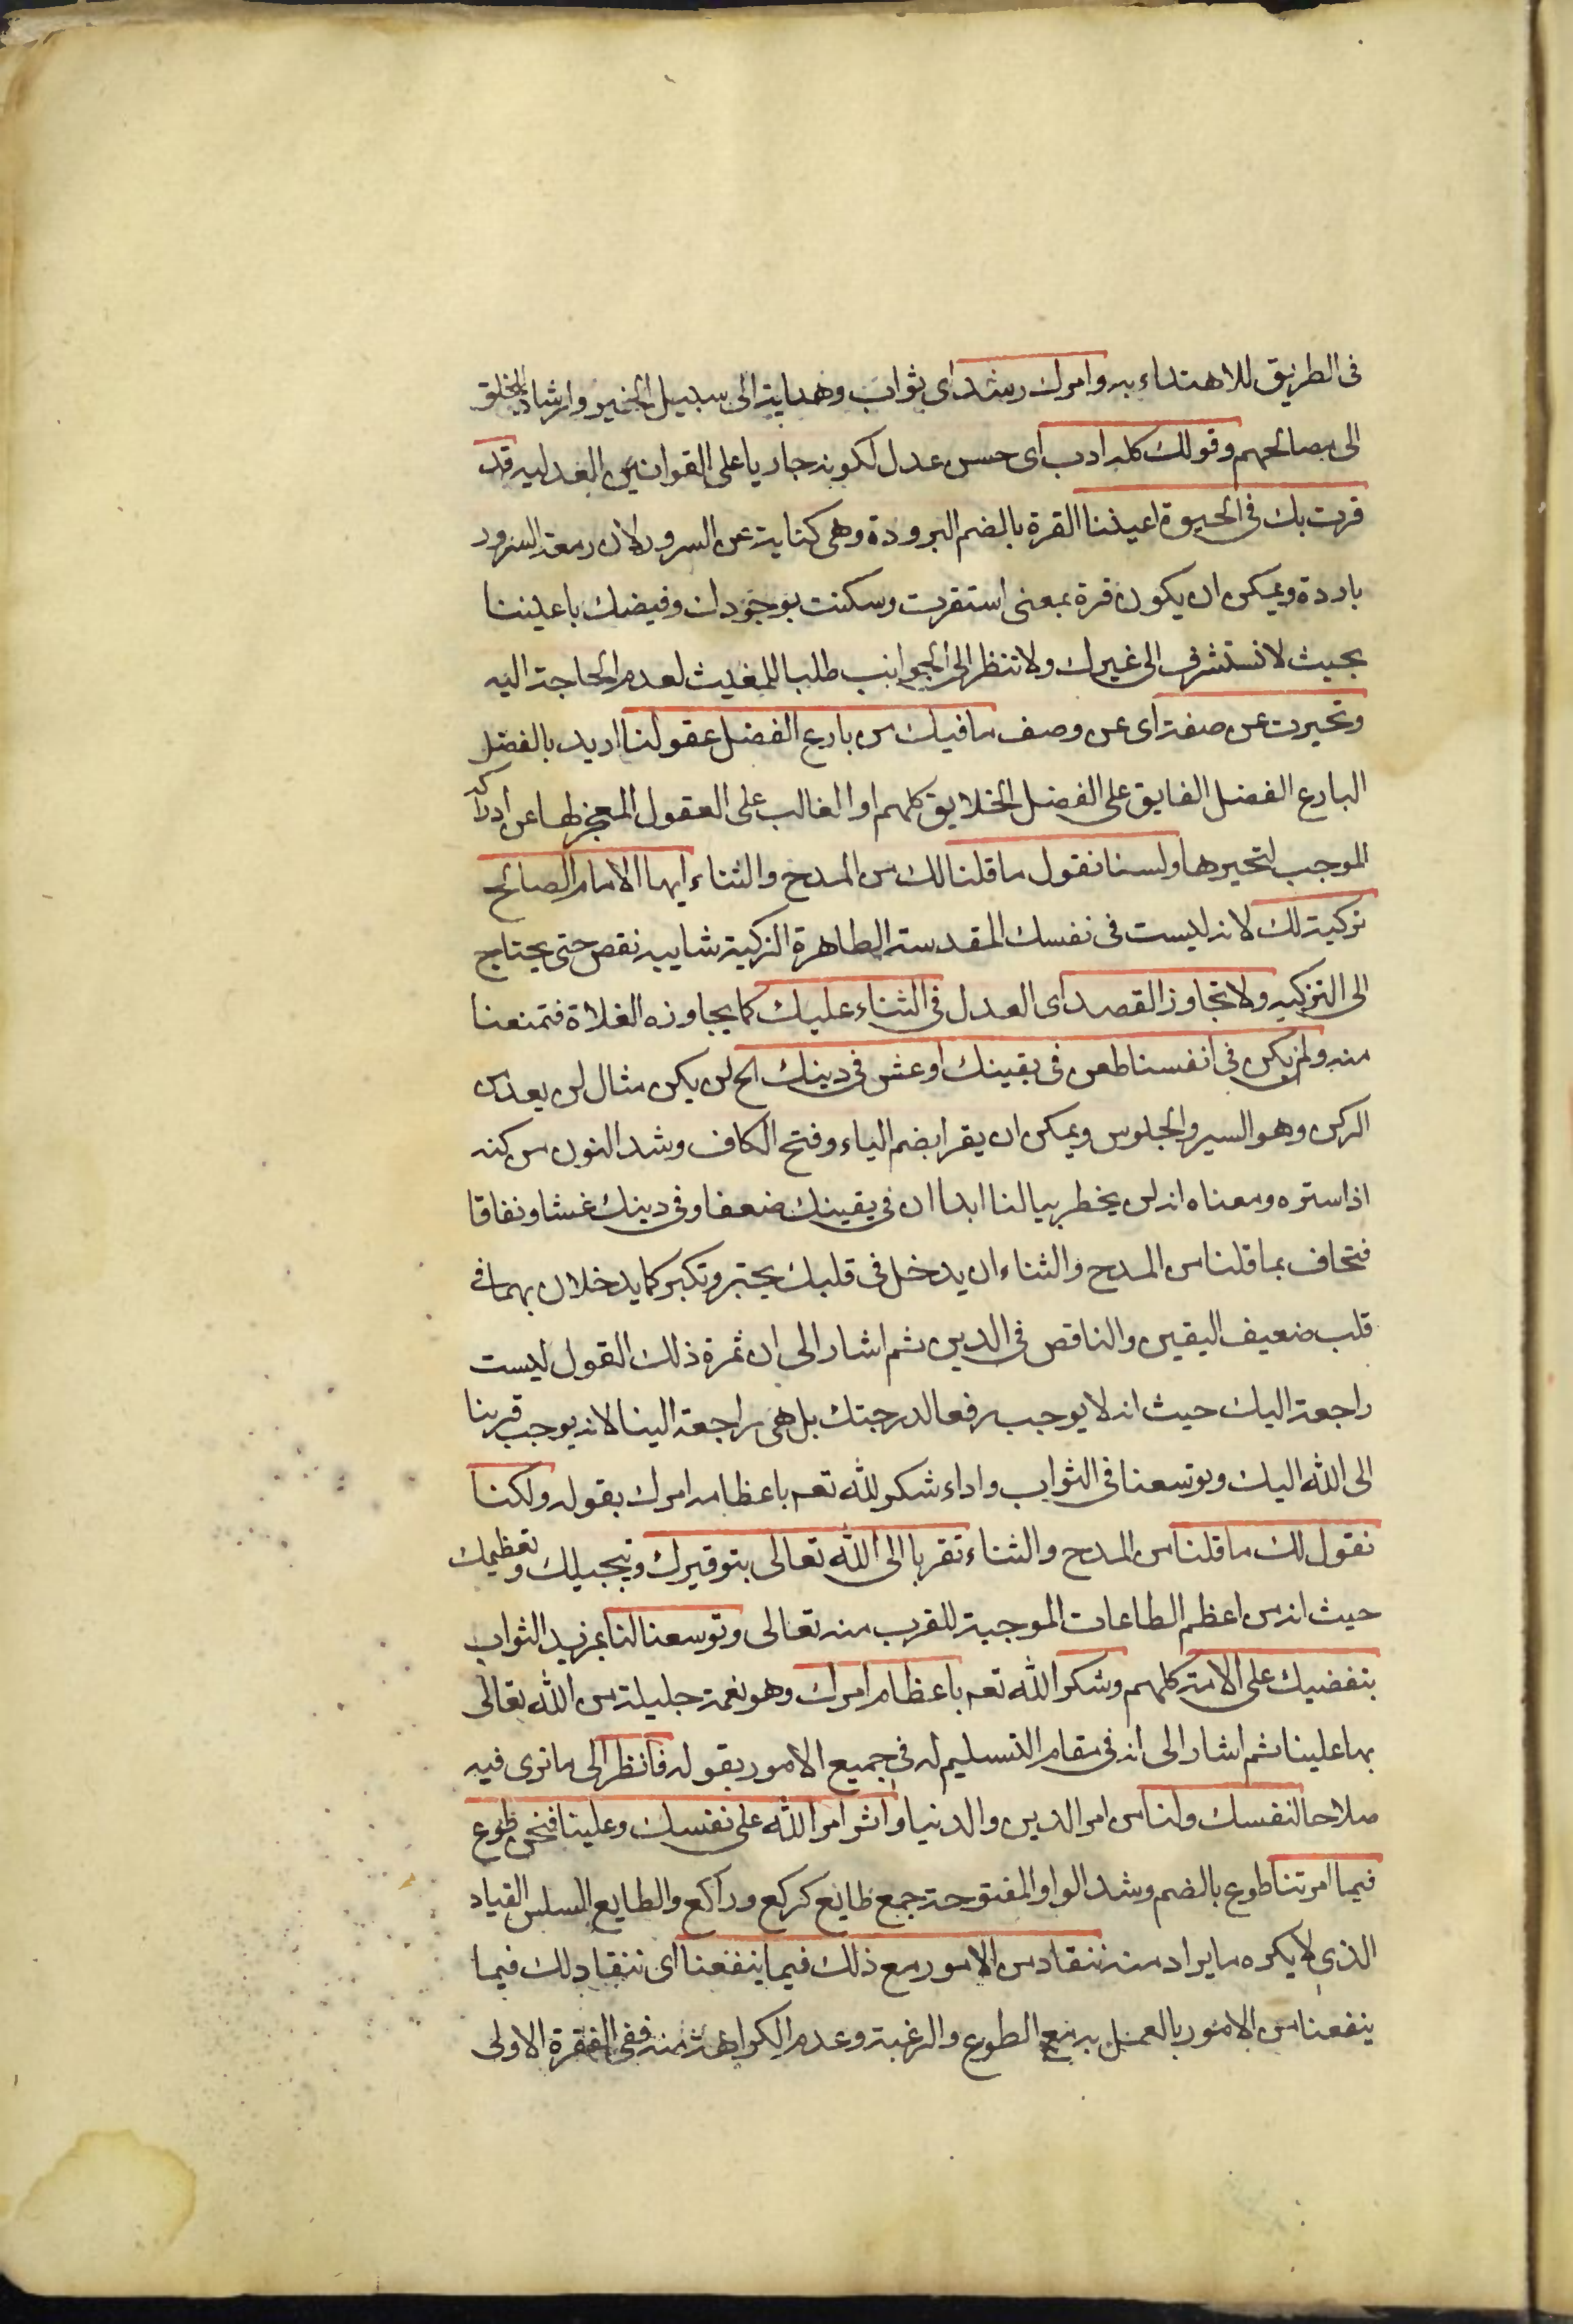 فى الطريق للاهتداء به وامرك رشد اى ثواب وهداية الى سبيل الخير وارشاد للخلق
الى مصالحهم وقولك كله ادب اى حسن عدل لكونه جاريا على القوانين العدليه قد
قرت بك فى الحيوة اعيننا القرة بالضم البرودة وهى كناية عن السرور لان دمعة السرور
باردة ويمكن ان يكون قرة بمعنى استقرت وسكنت بوجودك وفيضك باعيننا
بحيث لا تستشرف الى غيرك ولا تنظر الى الجوانب طلبا للمغيث لعدم الحاجة اليه
وتحيرت عن صفة اى عن وصف ما فيك من بارع الفضل عقولنا اريد بالفضل
البارع الفضل الفايق على الفضل الخلايق كلهم او الغالب على العقول المعجز لها عن ادراكه
الموجب لتحيرها ولسنا نقول ما قلنا لك من المدح والثناء ايها الامام الصالح
تزكية لك لانه ليست فى نفسك المقدسة الطاهرة الزكية شايبه نقص حتى يحتاج
الى التزكيه ولا تجاوز القصد اى العدل فى الثناء عليك كما يجاوزه الغلاة فتمنعنا
منه ولم يكن فى انفسنا طعن فى يقينك او غش فى دينك الخ لن يكن مثال لن يعد من
الركن وهو السير والجلوس ويمكن ان يقرا بضم الياء وفتح الكاف وشد النون من كنه
اذا ستره ومعناه انه لن يخطر ببالنا ابدا ان فى يقينك ضعفا وفى دينك غشا ونفاقا
فتخاف بما قلنا من المدح والثناء ان يدخل فى قلبك تجبر وتكبر كما يدخلان بهما فى
قلب ضعيف اليقين والناقص فى الدين ثم اشار الى ان ثمرة ذلك القول ليست
راجعة اليك حيث انه لا يوجب رفعا لدرجتك بل هى راجعة الينا لانه يوجب قربنا
الى الله اليك وتوسعنا فى الثواب واداء شكر لله تعم باعظامه امرك بقوله ولكنا
نقول لك ما قلنا من المدح والثناء تقربا الى الله تعالى بتوقيرك وتبجيلك وتعظيمك
حيث انه من اعظم الطاعات الموجبة للقرب منه تعالى وتوسعنا لنا بمزيد الثواب
بتفضيلك على الامة كلهم وشكر الله تعم باعظام امرك وهو نعمة جليلة من الله تعالى
بها علينا ثم اشار الى انه فى مقام التسليم له فى جميع الامور بقوله فانظر الى ما ترى فيه
صلاحا لنفسك ولنا من امر الدين والدنيا واثر امر الله على نفسك وعلينا فنحن طوع
فيما امرتنا طوع بالضم وشد الواو المفتوحة جمع طايع كركع وراكع والطايع السلس القياد
الذى لا يكره ما يراد منه ننقاد من الامور مع ذلك فيما ينفعنا اى ننقاد لك فيما
ينفعنا من الامور بالعمل به مع الطوع والرغبة وعدم الكراهة منه ففى الفقرة الاولى